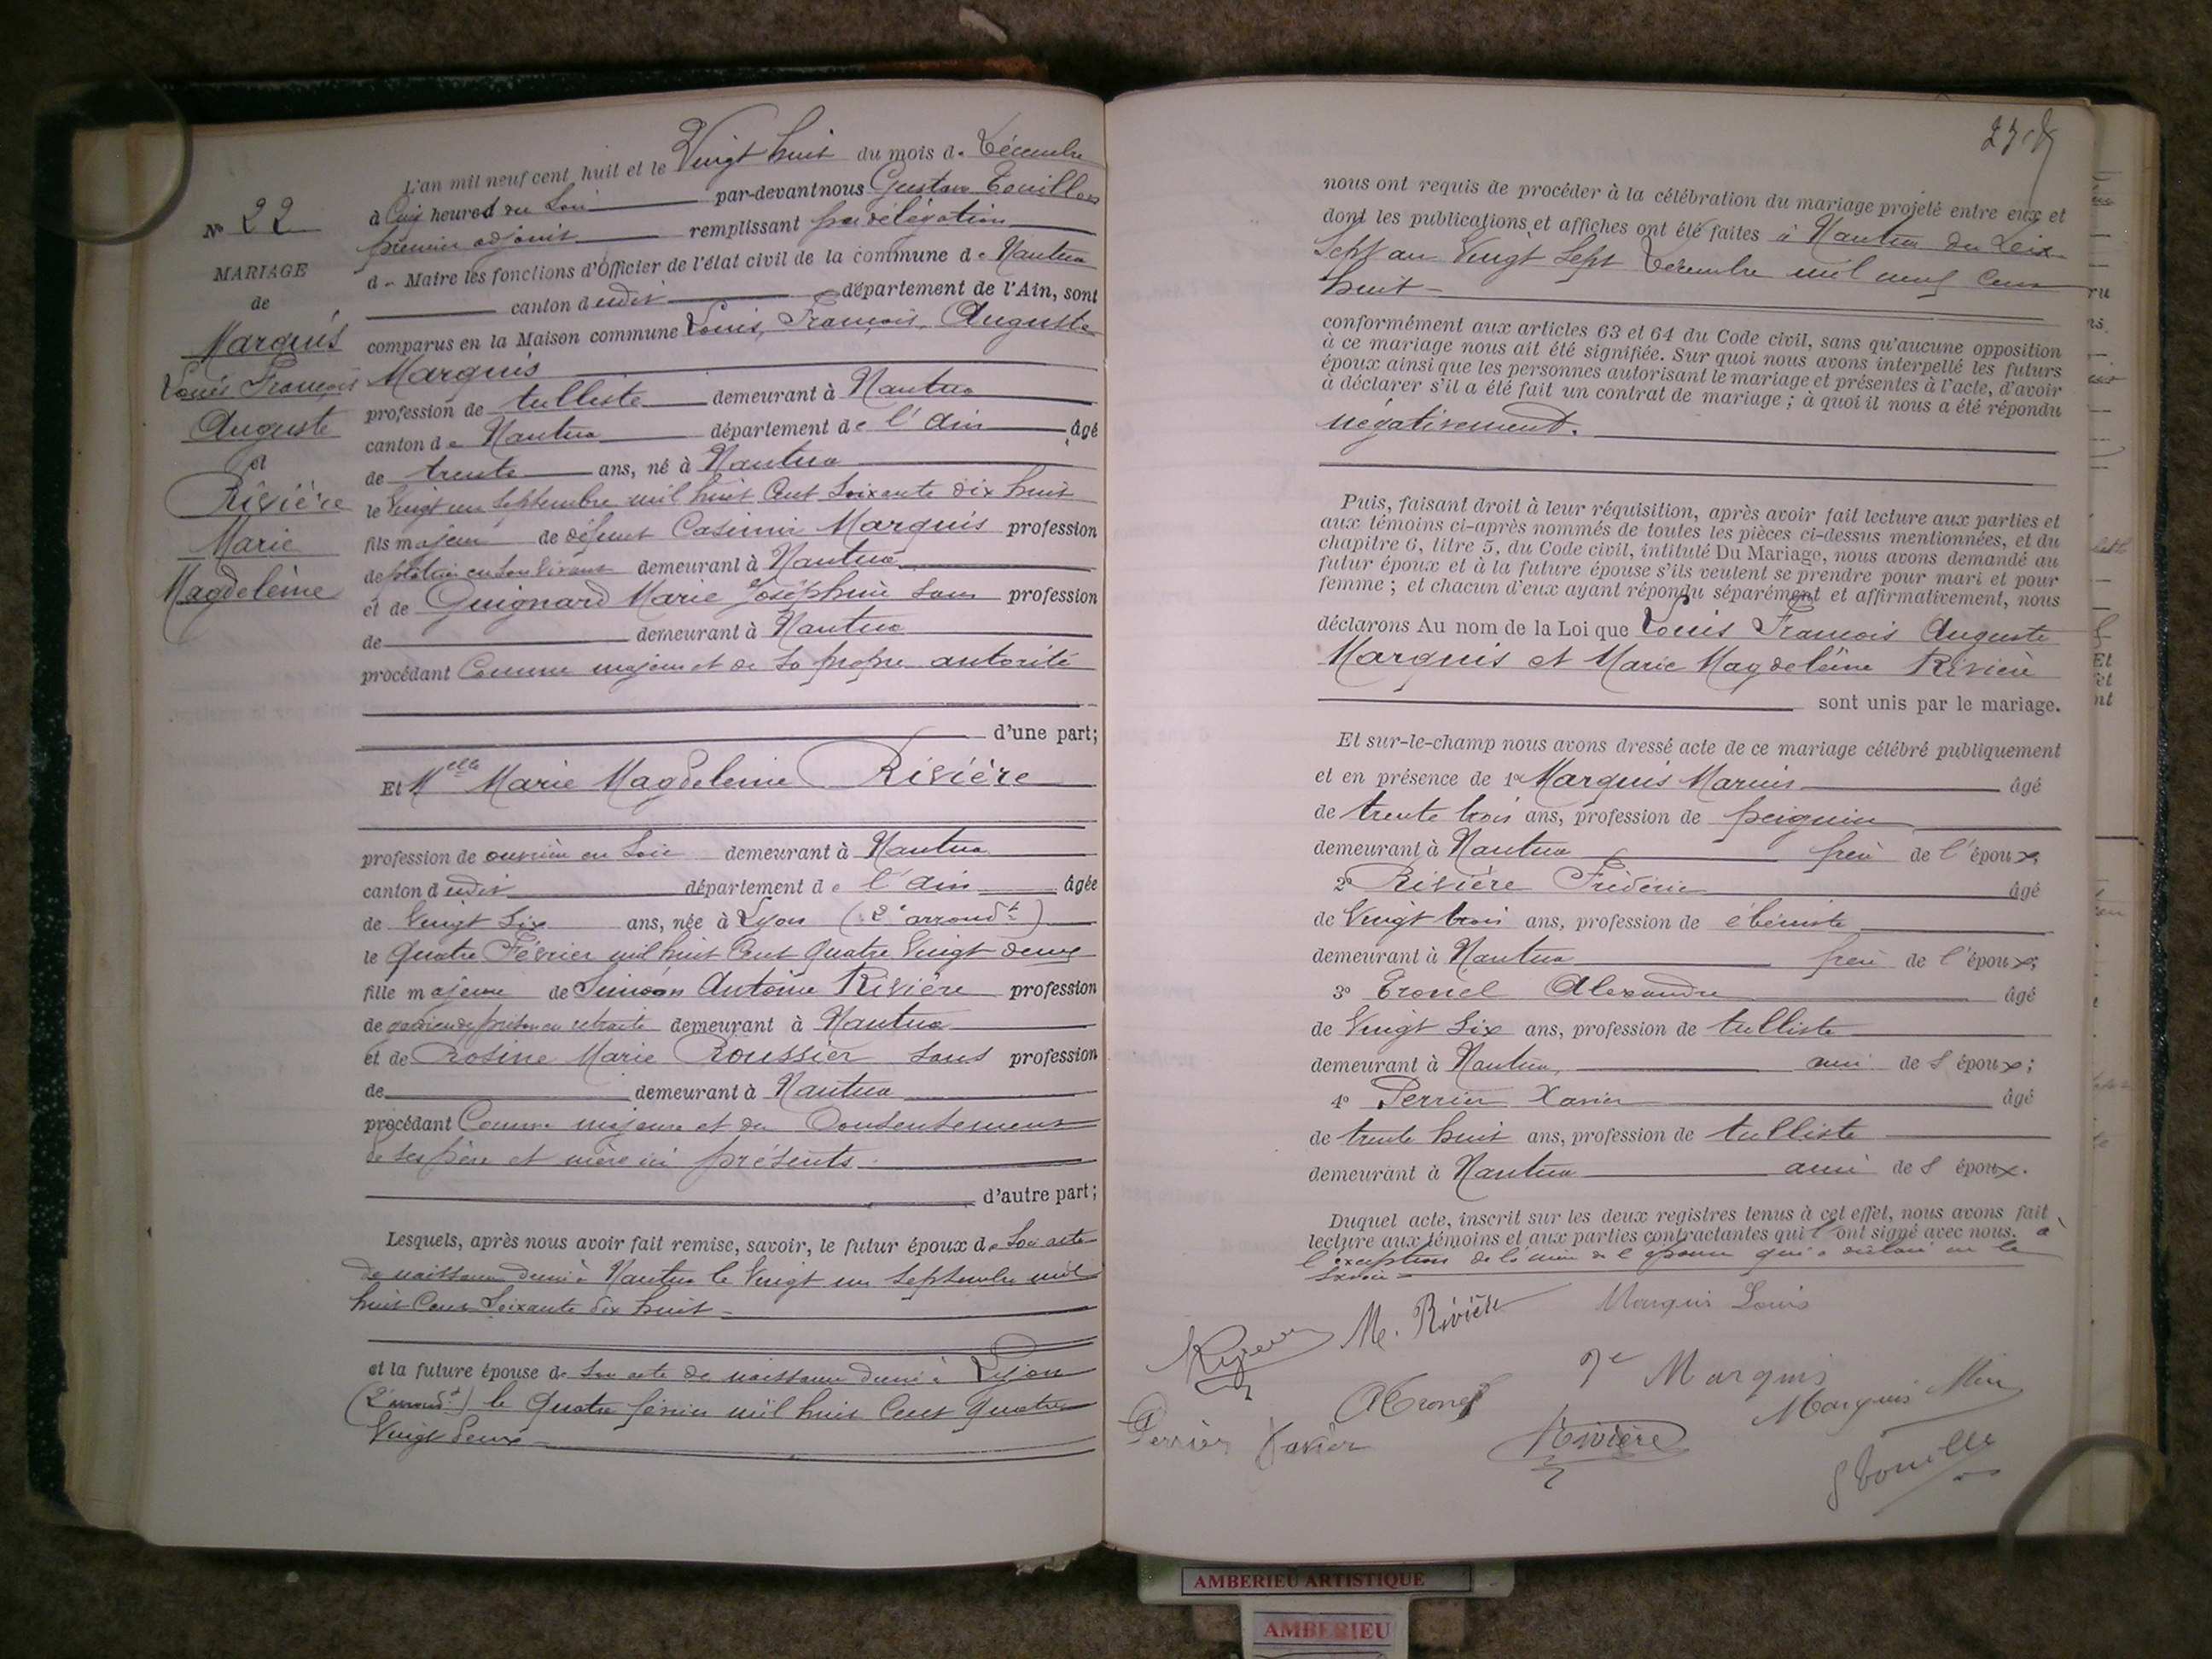 L'an mil neuf cent huit et le Vingt huit du mois de Décembre
à Cinq heures du Soir par-devant nous Gustave Touillon
premier adjoint remplissant par délégation
de Maire les fonctions d'Officier de l'état civil de la commune de Nantua
canton dudit département de l'Ain, sont
comparus en la Maison commune Louis, François, Auguste
Marquis
profession de tulliste demeurant à Nantua
canton de Nantua département de l'Ain âgé
de trente ans, né à Nantua
le Vingt un Septembre mil huit Cent Soixante dix huit
fils majeur de défunt Casimir Marquis profession
de platrier en son vivant demeurant à Nantua
et de Guignard Marie Joséphine Sans profession
de demeurant à Nantua
procédant Comme majeur et de Sa propre autorité
d'une part;
Nº 22
MARIAGE
de
Marquis
Louis François
Auguste
et
Rivière
Marie
Magdeleine
Et Melle Marie Magdeleine Rivière
profession de ouvrière en Soie demeurant à Nantua
canton dudit département de l'Ain âgée
de Vingt Six ans, née à Lyon (2e arrondt)
le Quatre Février mil huit Cent Quatre Vingt deux
fille majeure de Siméon Antoine Rivière profession
de gardien de prison en retraite demeurant à Nantua
et de Rosine Marie Roussier Sans profession
de demeurant à Nantua
procédant Comme majeure et du Consentement
de ses père et mère ici présents
d'autre part;
Lesquels, après nous avoir fait remise, savoir, le futur époux de Son acte
de naissance dressé à Nantua le Vingt un Septembre mil
huit Cent Soixante dix huit
et la future épouse de Son acte de naissance dressé à Lyon
(2e arrondt) le Quatre février mil huit Cent Quatre
Vingt deux
nous ont requis de procéder à la célébration du mariage projeté entre eux et
dont les publications et affiches ont été faites à Nantua du Dix
Sept au Vingt Sept Décembre mil neuf Cent
huit
conformément aux articles 63 et 64 du Code civil, sans qu'aucune opposition
à ce mariage nous ait été signifiée. Sur quoi nous avons interpellé les futurs
époux ainsi que les personnes autorisant le mariage et présentes à l'acte, d'avoir
à déclarer s'il a été fait un contrat de mariage; à quoi il nous a été répondu
négativement.
Puis, faisant droit à leur réquisition, après avoir fait lecture aux parties et
aux témoins ci-après nommés de toutes les pièces ci-dessus mentionnées, et du
chapitre 6, titre 5, du Code civil, intitulé Du Mariage, nous avons demandé au
futur époux et à la future épouse s'ils veulent se prendre pour mari et pour
femme; et chacun d'eux ayant répondu séparément et affirmativement, nous
déclarons Au nom de la Loi que Louis François Auguste
Marquis et Marie Magdeleine Rivière
sont unis par le mariage.
Et sur-le-champ nous avons dressé acte de ce mariage célébré publiquement
et en présence de 1º Marquis Marius âgé
de trente trois ans, profession de
demeurant à Nantua frère de l'époux;
2º Rivière Frédéric âgé
de Vingt trois ans, profession de ébéniste
demeurant à Nantua frère de l'époux;
3º Tronel Alexandre âgé
de Vingt Six ans, profession de tulliste
demeurant à Nantua ami de l'époux;
4º Perrier Xavier âgé
de trente huit ans, profession de tulliste
demeurant à Nantua ami de l'époux.
Duquel acte, inscrit sur les deux registres tenus à cet effet, nous avons fait
lecture aux témoins et aux parties contractantes qui l'ont signé avec nous. à
l'exception de la mère de l'époux qui a déclaré ne le
savoir
M. Rivière Marquis Louis
Marquis
Marquis
Tronel
Perrier Xavier Rivière
AMBERIEU ARTISTIQUE
AMBERIEU